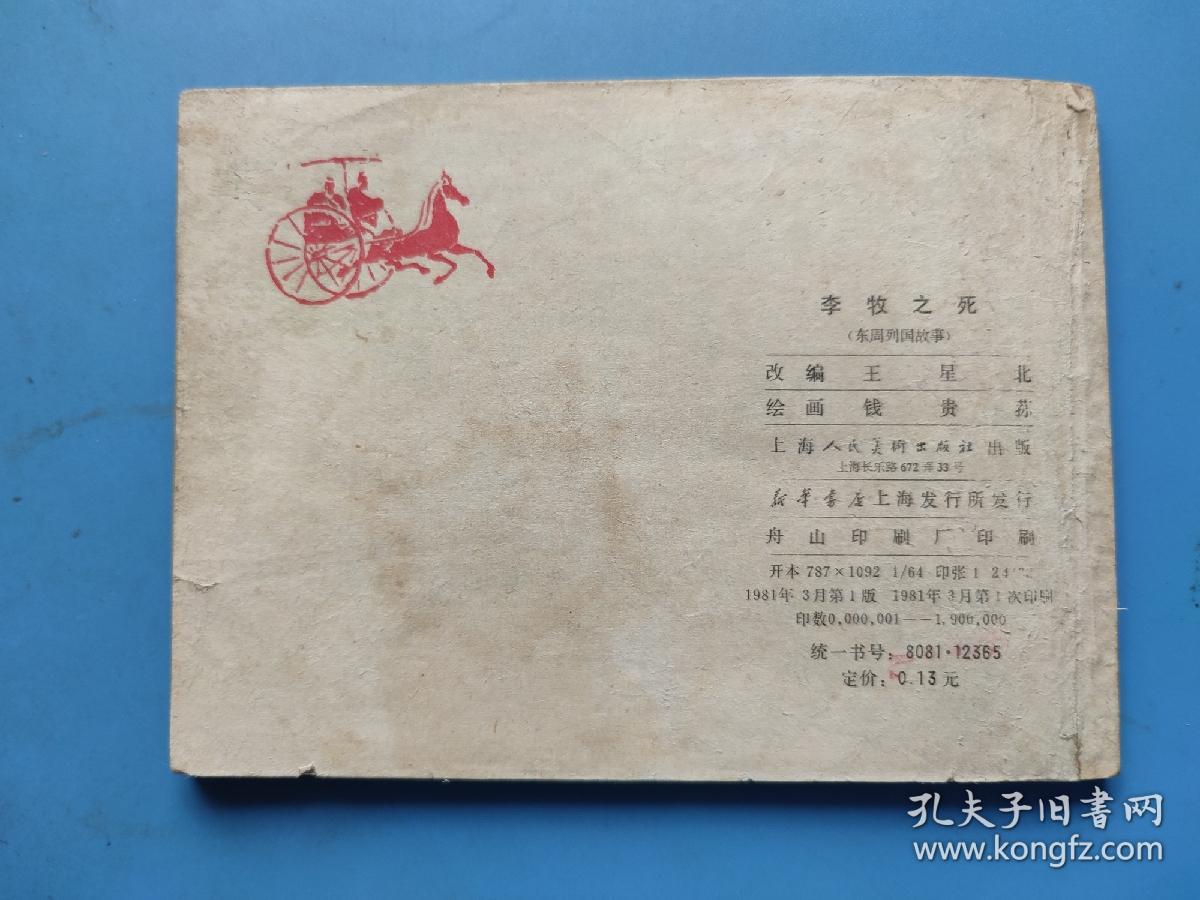 李牧之死
(东周列国故事)
改编 王星北
绘画 钱贵荪
上海人民美术出版社出版
上海长乐路672弄33号
新华书店上海发行所发行
舟山印刷厂印刷
开本 787×1092 1/64 印张 1
1981年3月第1版 1981年3月第1次印刷
印数0,000,001——1,900,000
统一书号：8081·12365
定价：0.13元
孔夫子旧书网
www.kongfz.com